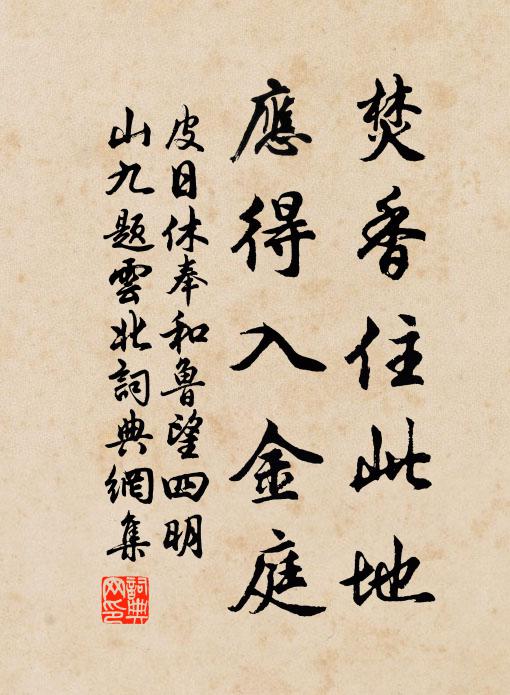 焚香住此地
應得入金庭
皮日休奉和魯望四明
山九題雲北詞典網集
詞典
网印